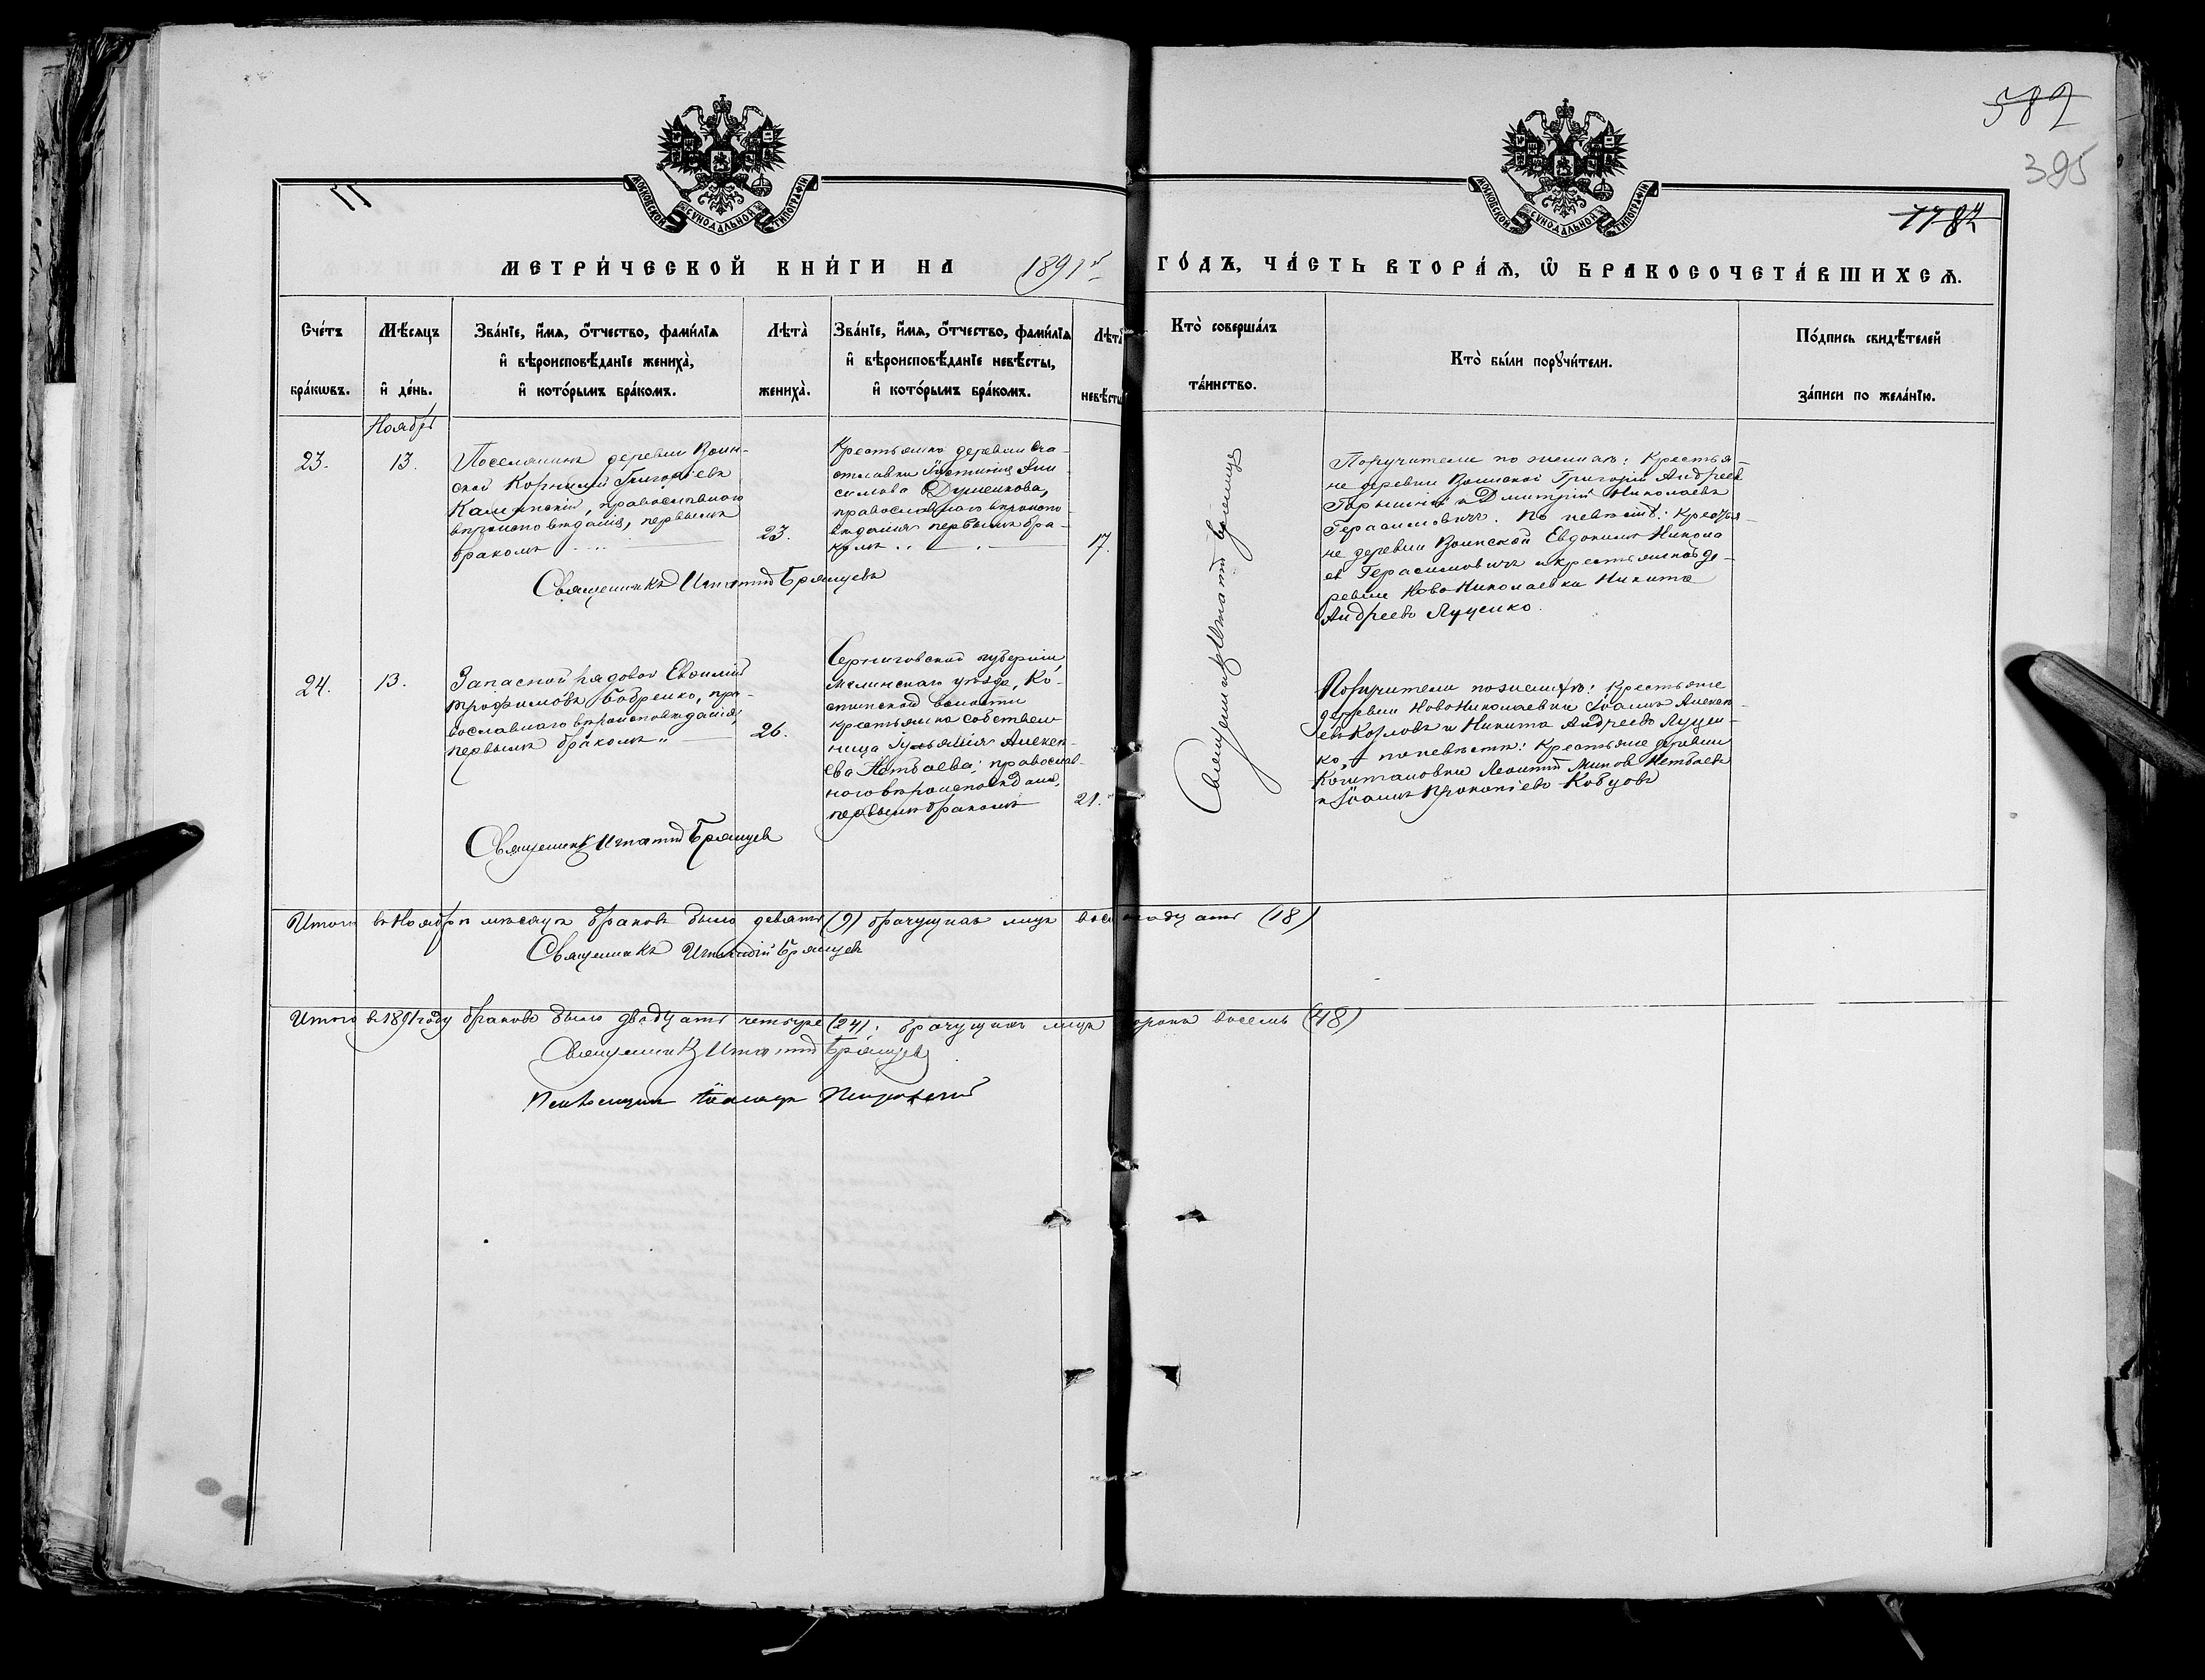 582
395
11
1784
МОСКОВСКОЙ СѴНОДАЛЬНОЙ ТИПОГРАФІИ
МОСКОВСКОЙ СѴНОДАЛЬНОЙ ТИПОГРАФІИ
МЕТРИ́ЧЕСКОЙ КНИ́ГИ НА 1891 й ГО́ДЪ, ЧА́СТЬ ВТОРА́Ѧ, Ѿ БРАКОСОЧЕТА́ВШИХСѦ.
Сче́тъ бра́кѡвъ.
Мѣ́сяцъ и҆ де́нь.
Зва́нїе, и҆́мѧ, ѻ҆́тчество, фами́лїѧ
и҆ вѣроисповѣ́данїе жениха̀,
и҆ кото́рымъ бра́комъ.
Лѣта̀ жениха̀.
Зва́нїе, и҆́мѧ, ѻ҆́тчество, фами́лїѧ
и҆ вѣроисповѣ́данїе невѣ́сты,
и҆ кото́рымъ бра́комъ.
Лѣта̀ невѣ́сты
Кто̀ соверша́лъ та́инство.
Кто̀ бы́ли порꙋчи́тели.
По́дпись свидѣ́телей
за́писи по жела́нїю.
Ноябрь
23.
13.
Поселянинъ деревни Воин-
ской Корнилій Григоріевъ
Калинскій, православнаго
вѣроисповѣданія, первымъ
бракомъ
23.
Крестьянка деревни Сча-
стливки Іустинія Ани-
симова Душенкова,
православнаго вѣроиспо-
вѣданія первымъ бра-
комъ
17.
Священникъ Игнатій Брянцевъ
Священникъ Игнатій Брянцевъ
Поручители по женихѣ: Крестья-
не деревни Воинской Григорій Андреев
и Дмитрій Николаевъ
Герасимовичъ. По невѣстѣ: Крестья-
не деревни Воинской Евдокимъ Никола
евъ Герасимовичъ и крестьянинъ де-
ревни Ново Николаевки Никита
Андреевъ Луценко.
24.
13.
Запасной рядовой Евѳимій
Трофимовъ Бобренко, пра-
вославнаго вѣроисповѣданія,
первымъ бракомъ
26.
Черниговской губерніи,
Мглинскаго уѣзда, Ко-
стинской волости
крестьянка собствен-
ница Іуліанія Алексѣ-
ева Нетбаева; православ-
наго вѣроисповѣданія,
первымъ бракомъ
21.
Священникъ Игнатій Брянцевъ
Поручители по женихѣ: Крестьяне
деревни Ново Николаевки Іоаннъ Алексѣ-
евъ Козловъ и Никита Андреевъ Луцен-
ко, по невѣстѣ: Крестьяне деревни
Леонтій Нетбаевъ
и Іоаннъ Прокопіевъ Кобцовъ
Итого въ Ноябрѣ мѣсяцѣ браковъ было девять (9) брачущихся лицъ восемнадцать (18)
Священникъ Игнатій Брянцевъ
Итого въ 1891 году браковъ было двадцать четыре (24), брачущихся лицъ сорокъ восемь (48)
Священникъ Игнатій Брянцевъ
Псаломщикъ